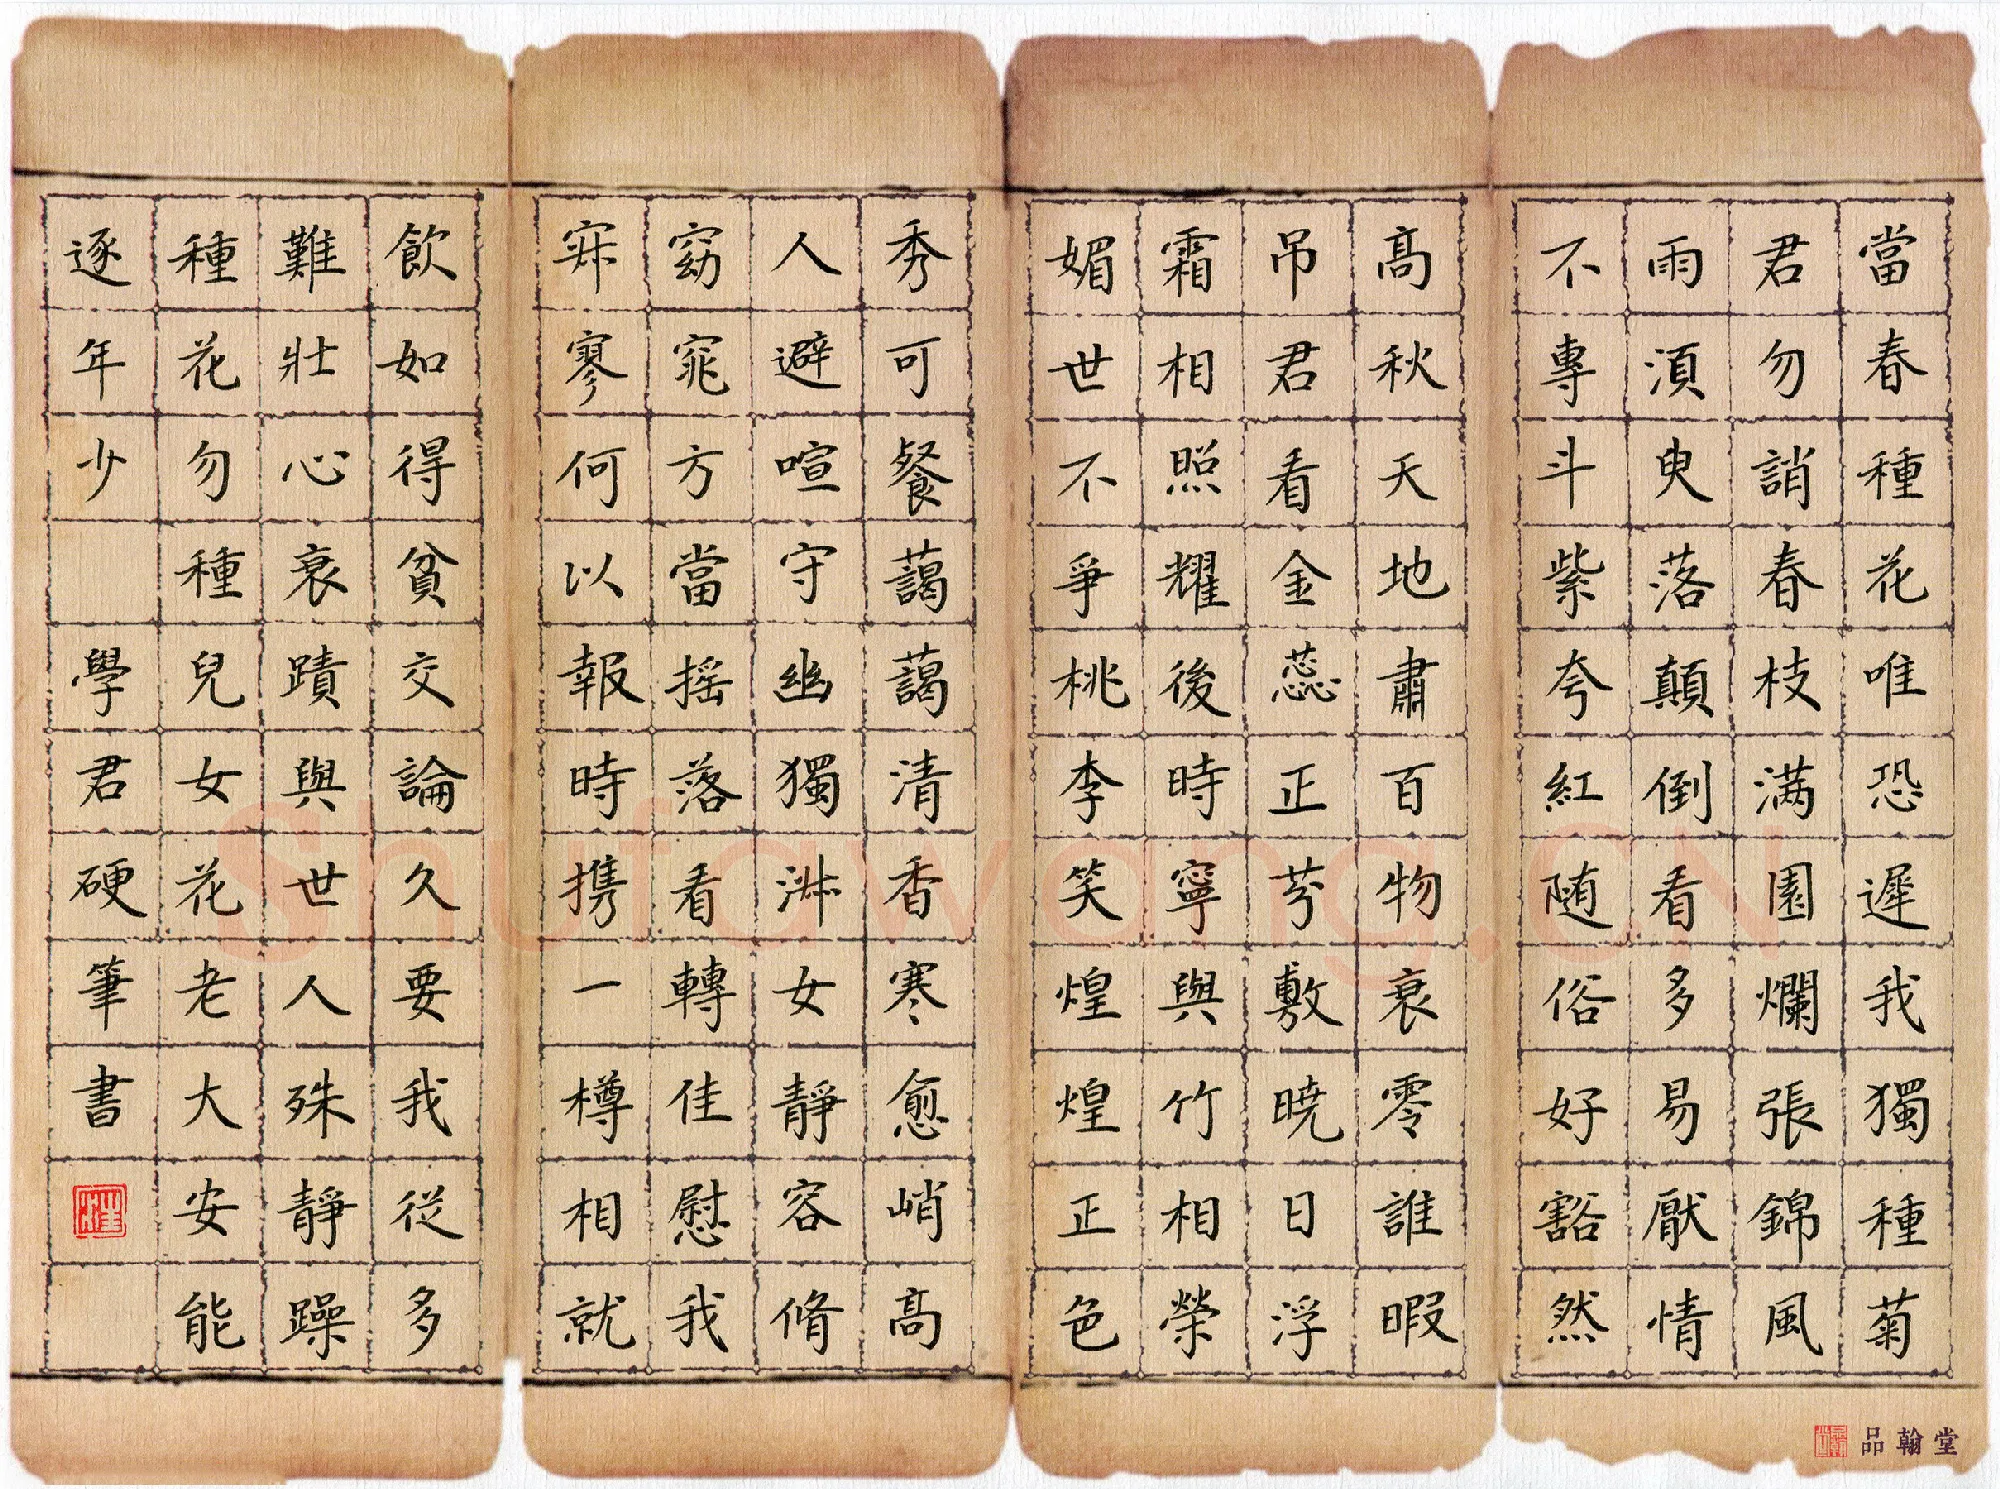 當春種花唯恐遲我獨種菊
君勿誚春枝滿園爛張錦風
雨須臾落顛倒看多易厭情
不專斗紫夸紅随俗好豁然
高秋天地肅百物衰零誰暇
吊君看金蕊正芬敷曉日浮
霜相照耀後時寧與竹相榮
媚世不爭桃李笑煌煌正色
秀可餐藹藹清香寒愈峭高
人避喧守幽獨淑女靜容脩
窈窕方當摇落看轉佳慰我
寂寥何以報時携一樽相就
飲如得貧交論久要我從多
難壯心衰蹟與世人殊靜躁
種花勿種兒女花老大安能
逐年少 學君硬筆書
品翰堂
Shufawang.CN